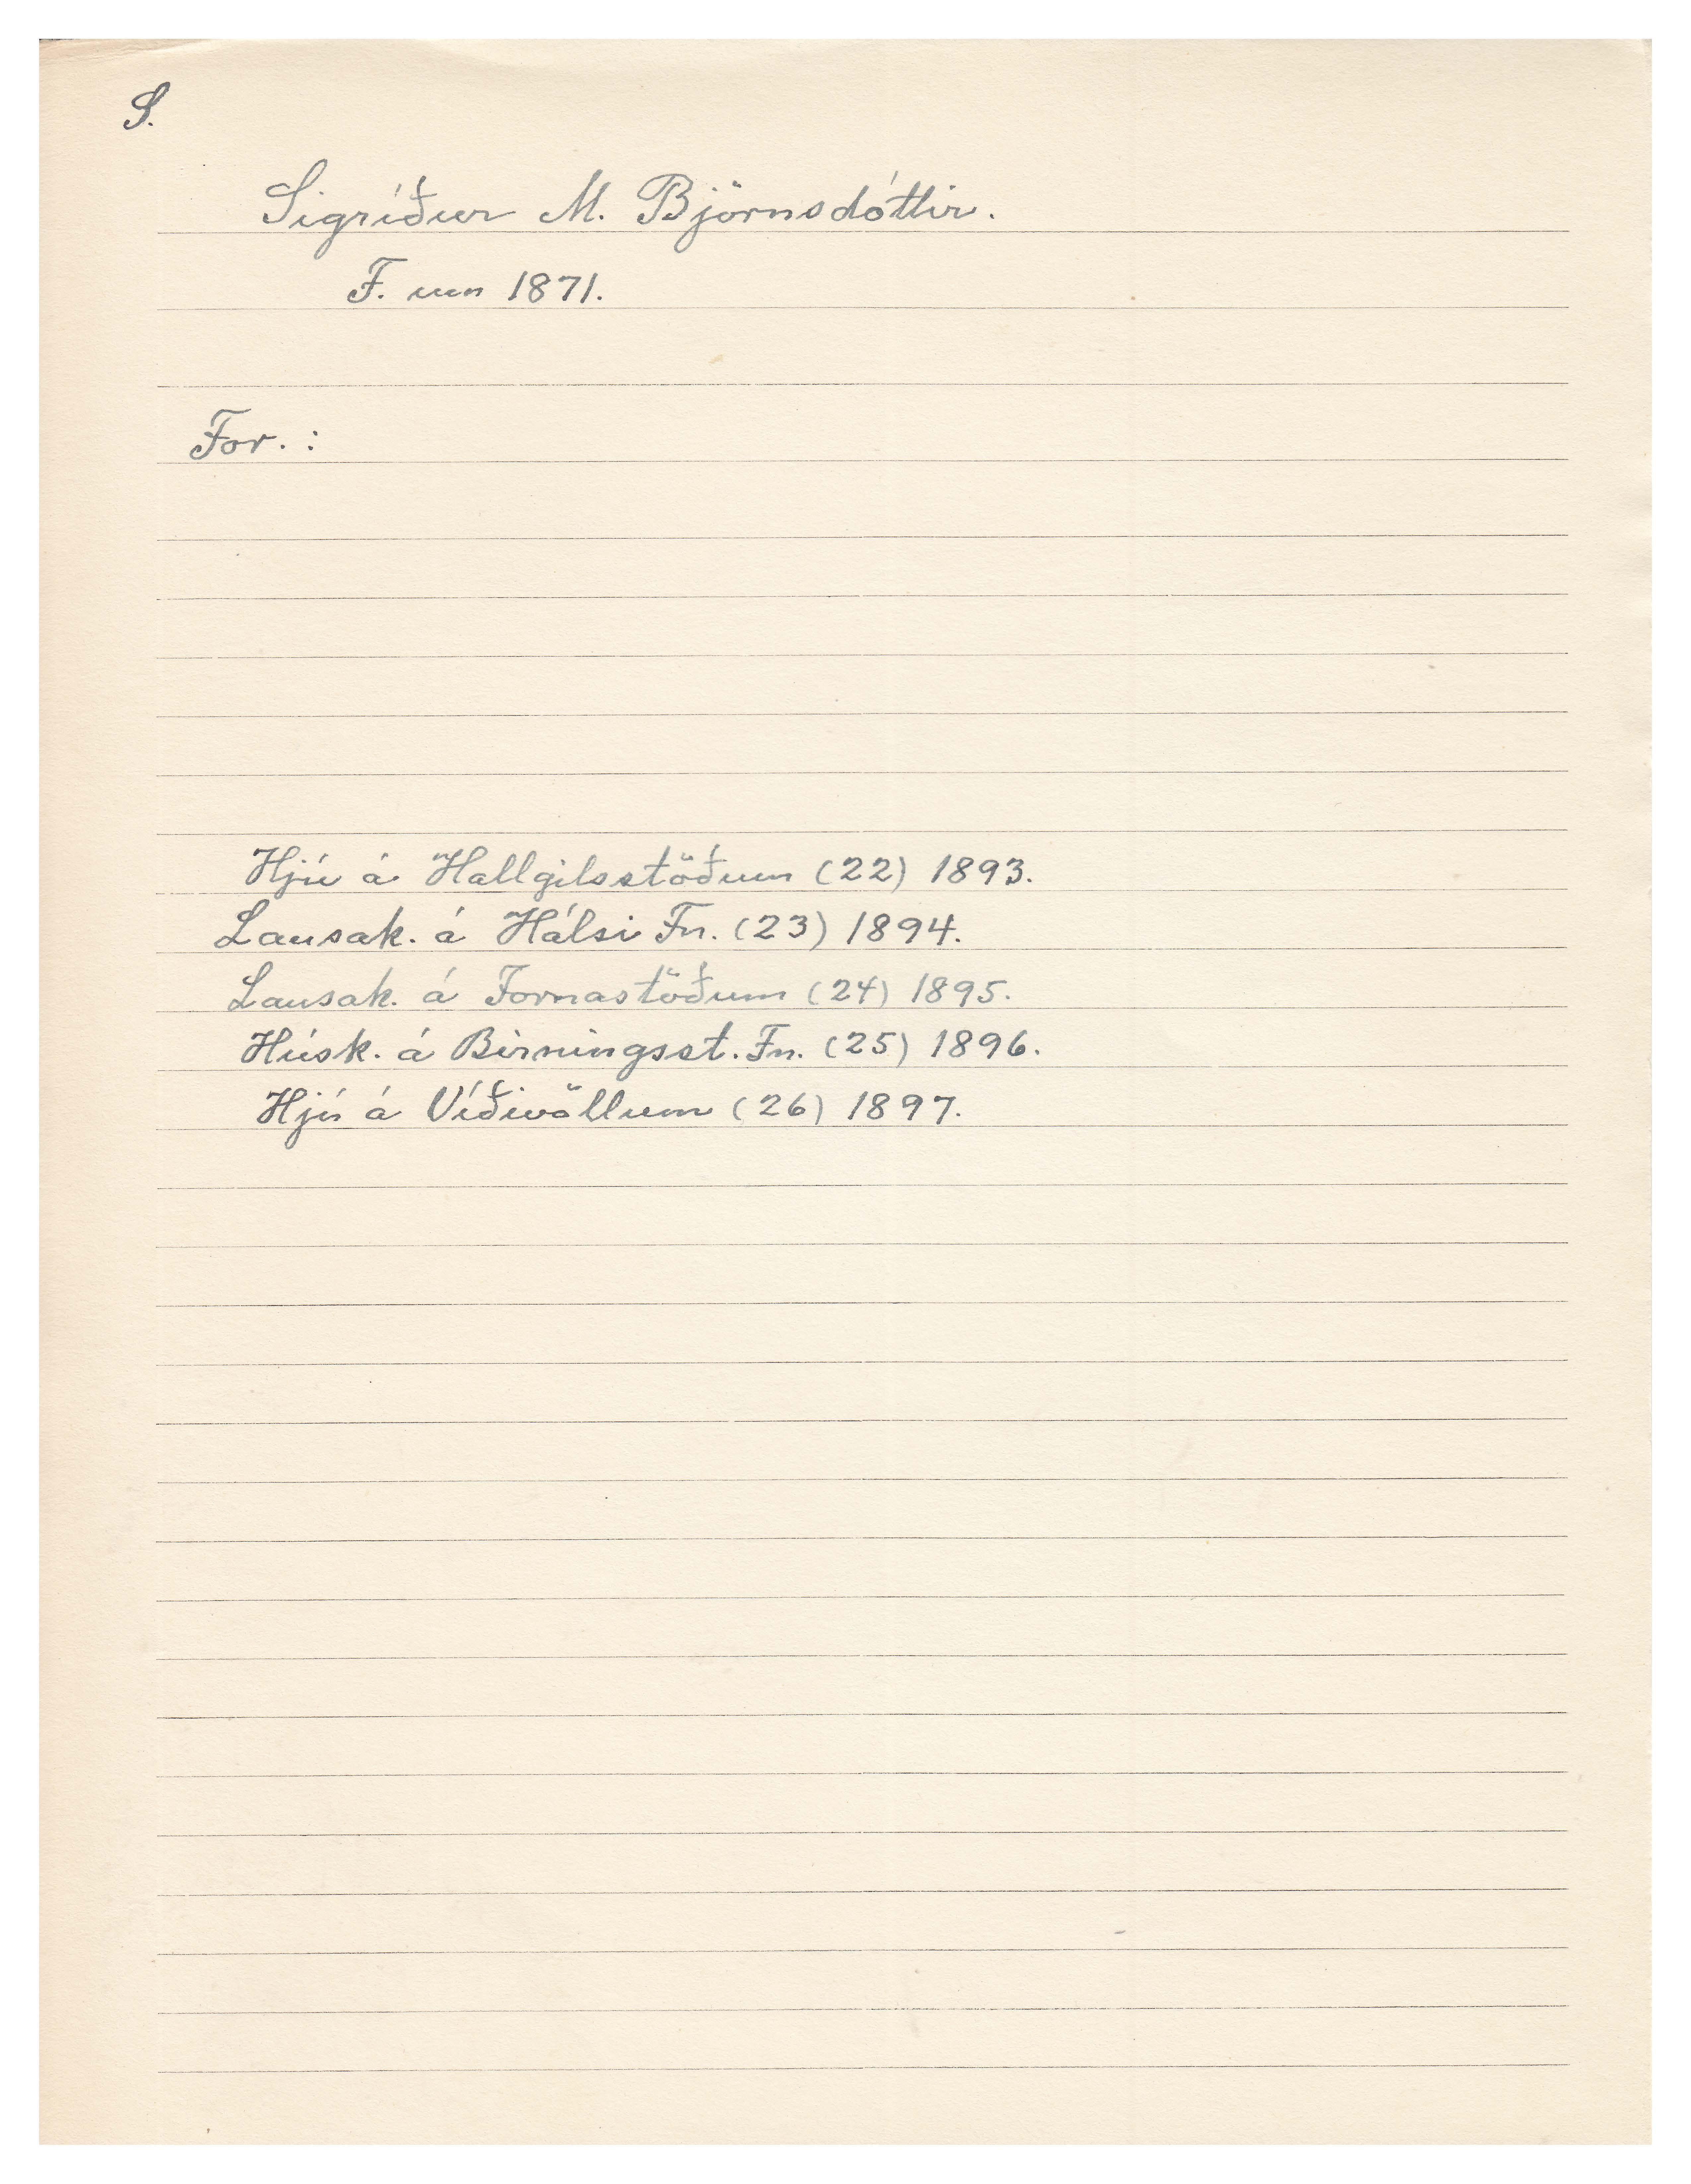 S.
Sigríður M. Björnsdóttir.
F. um 1871.
For. :
Hjú á Hallgilsstöðum (22) 1893.
Lausak. á Hálsi Fn. (23) 1894.
Lausak. á Fornastöðum (24) 1895.
Húsk. á Birningsst. Fn. (25) 1896.
Hjú á Víðivöllum (26) 1897.